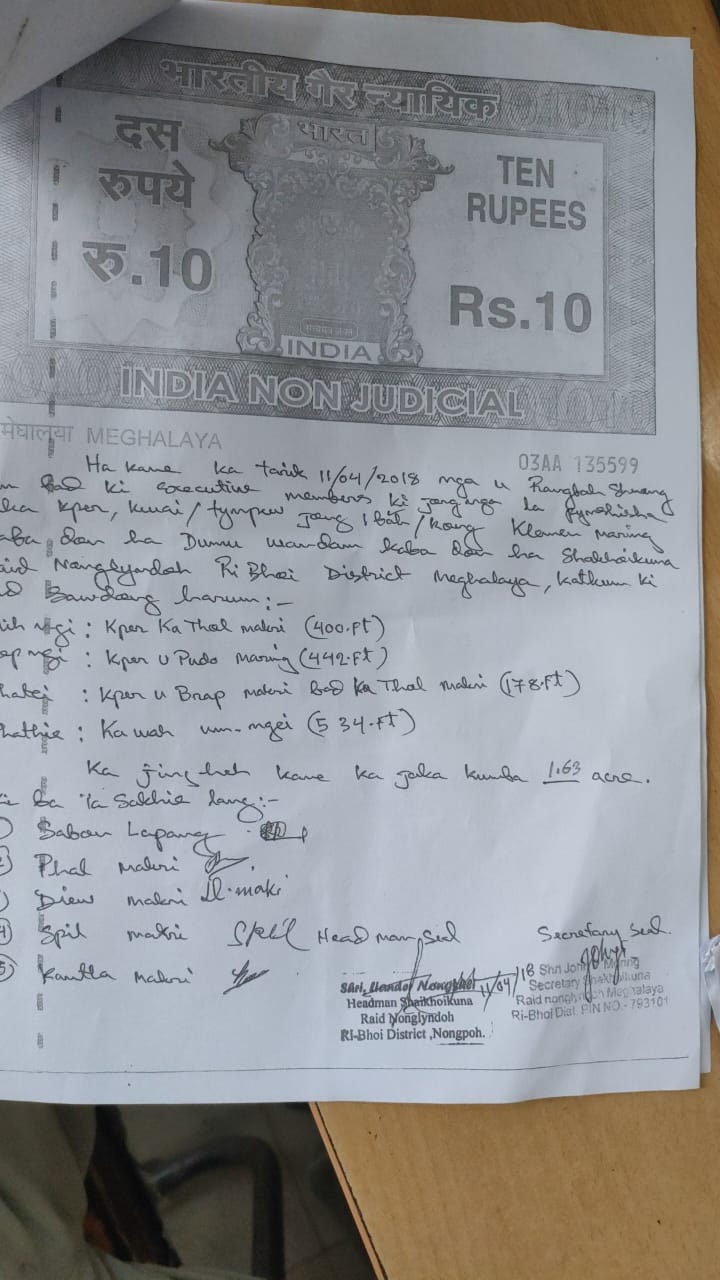 भारतीय गैर न्यायिक
दस
रुपये
रु.10
भारत
TEN
RUPEES
Rs.10
सत्यमेव जयते
INDIA
INDIA NON JUDICIAL
मेघालया MEGHALAYA
03AA 135599
Ha kane ka tarik 11/04/2018 nga u Rangbah Shnong
bad ki executive members ki jong nga la pynskhem
ka kper, kwai / tympew jong i bah / kong Klemen Maring
aba don ha Dumu wandam kaba don ha Shakhoikuna
aid Nonglyndoh Ri Bhoi District Meghalaya, katkum ki
Sawdong harum:-
ngi : Kper Ka Thal Makri (400.Ft)
ep ngi : Kper u Pudo Maring (442.Ft)
hatei : Kper u Bnap Makri bad Ka Thal Makri (178.Ft)
hathie : Ka wah um-ngei (534.Ft)
Ka jingheh kane ka jaka kumba 1.63 acre.
ba ia Sakhie lang:-
Saban Lapang
Phal Makri
Diew Makri D.maki
4) Spil Makri Spil Head man Seal
Secretary Seal.
5) Kantla Makri
11/04/18
Headman Shaikhoikuna
Raid Nonglyndoh
Ri-Bhoi District ,Nongpoh.
Shri John Maring
Secretary Shakhoikuna
Raid nonglyndoh Meghalaya
Ri-Bhoi Dist. PIN NO.- 793101